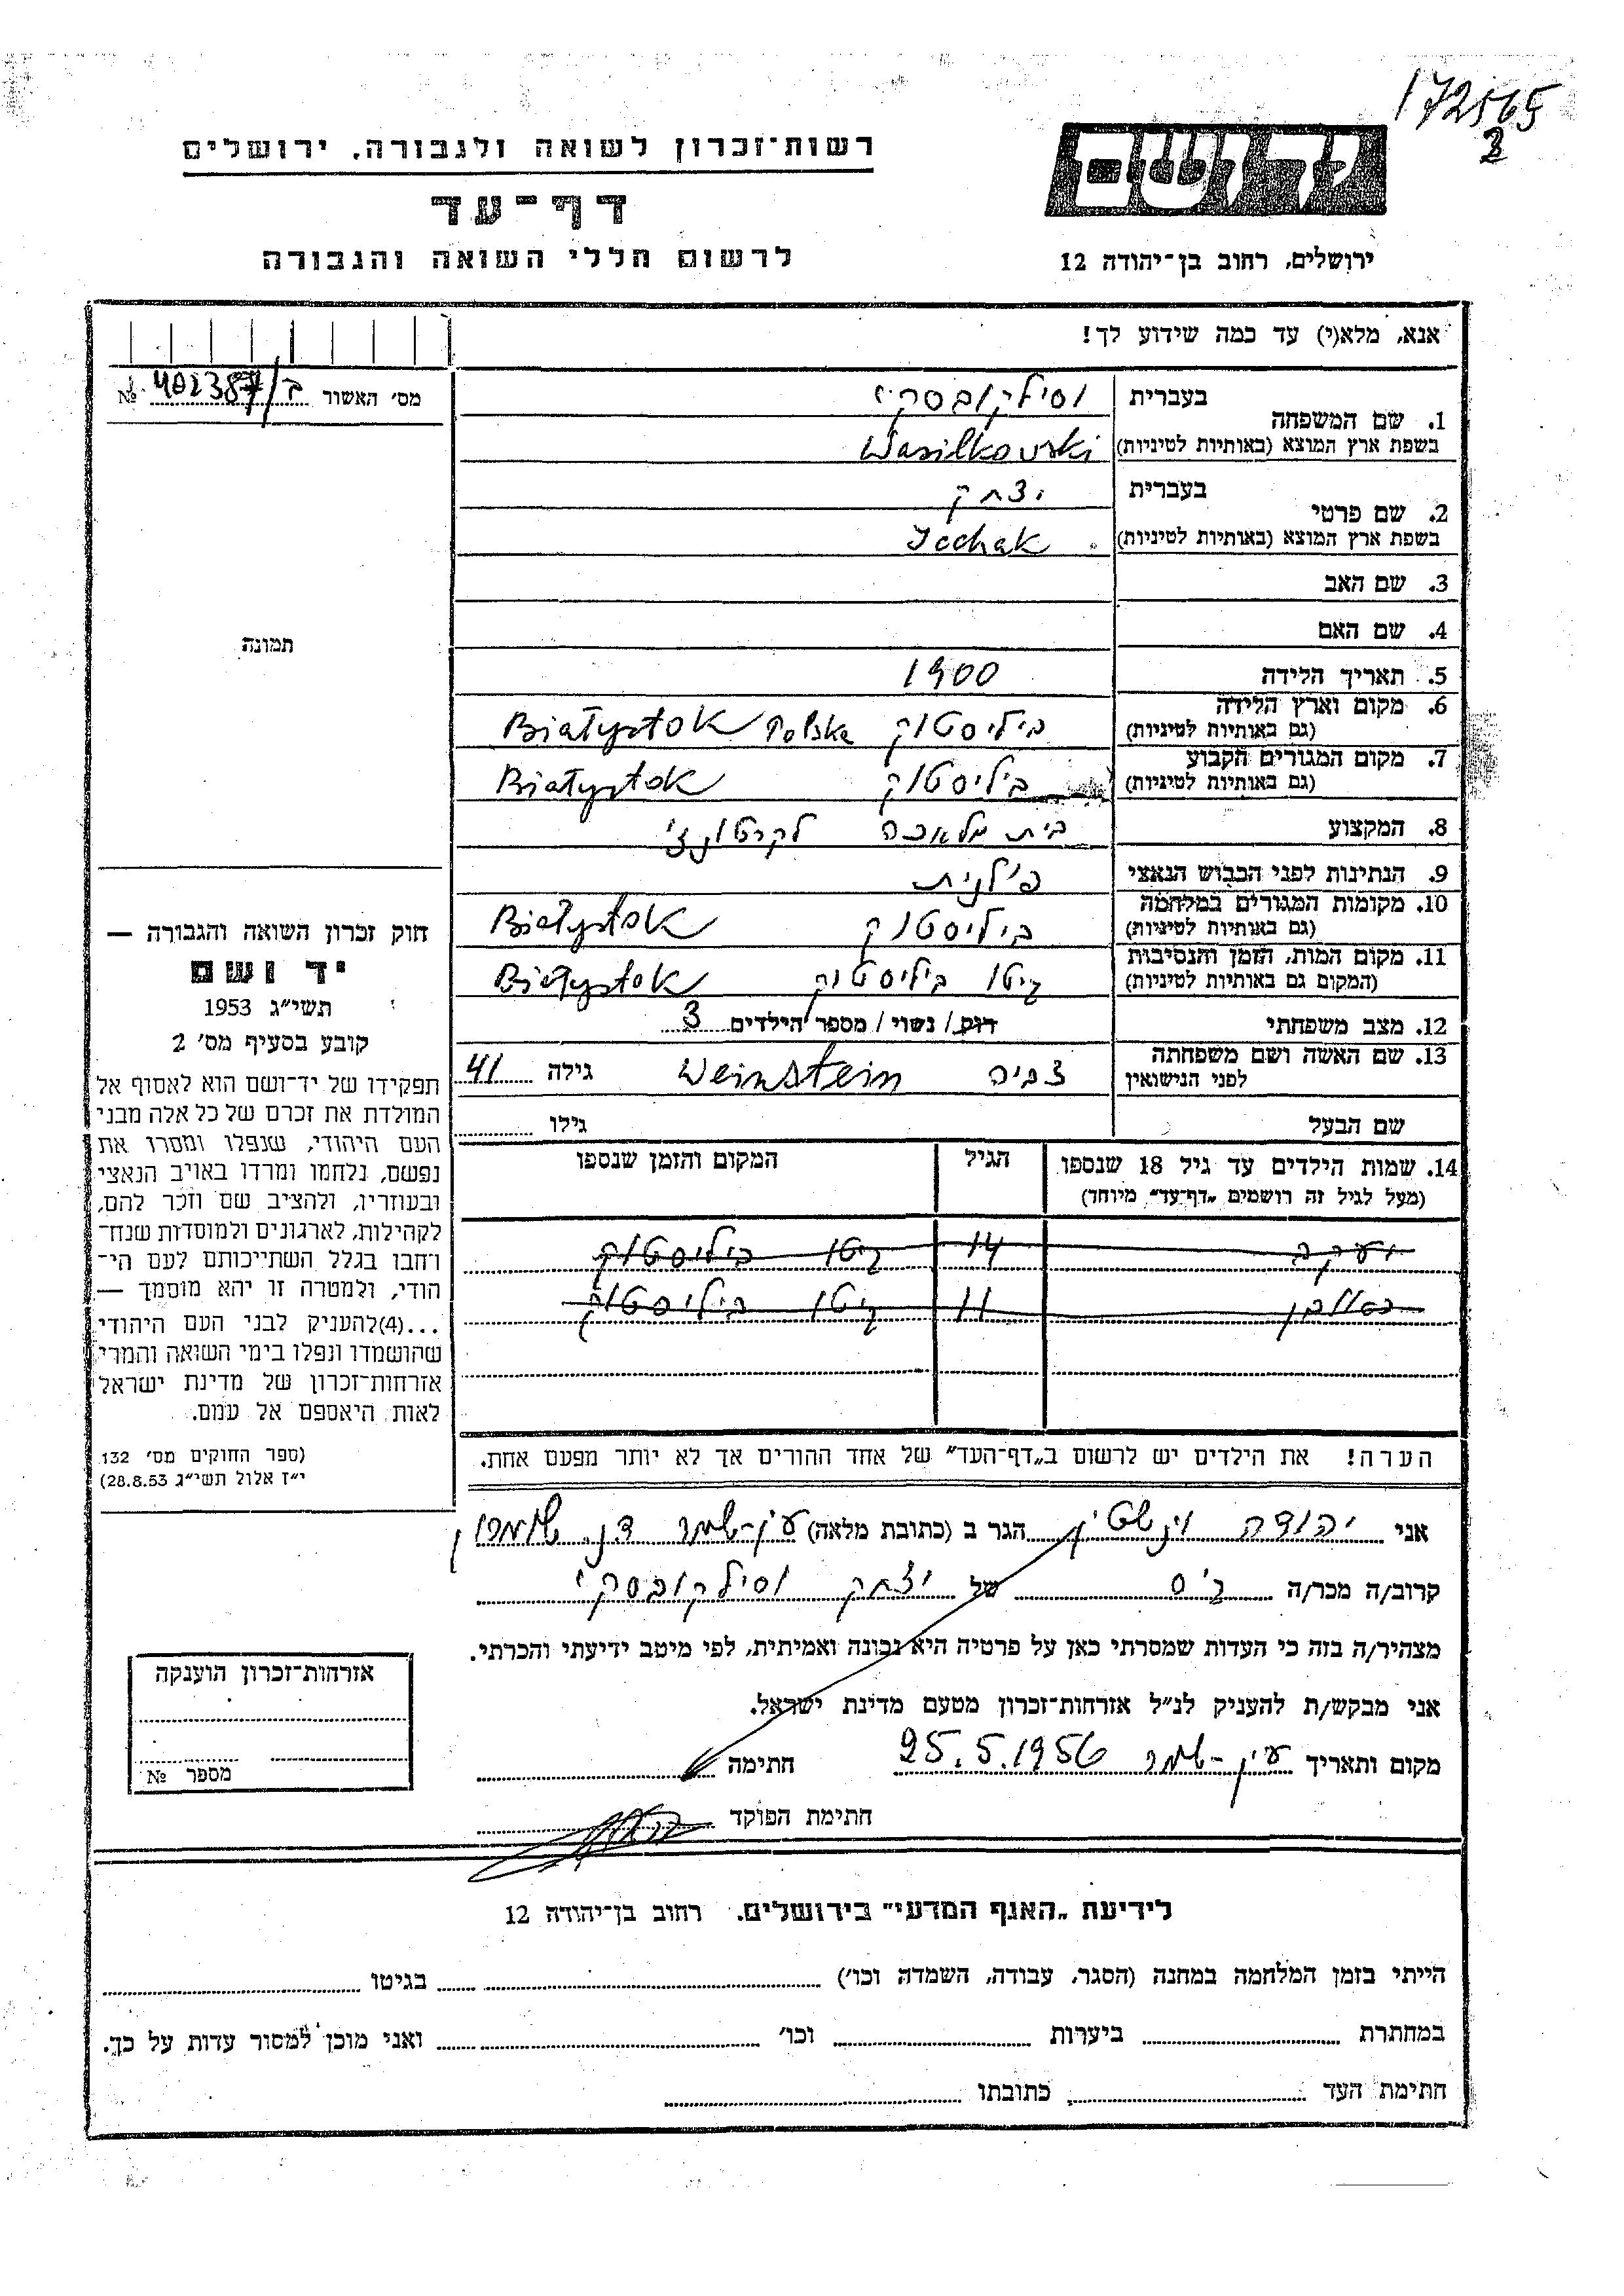 172565
2
רשות־זכרון לשואה ולגבורה, ירושלים
ידושם
דף־עד
לרשום חללי השואה והגבורה
ירושלים, רחוב בן־יהודה 12
אנא, מלא(י) עד כמה שידוע לך!
מס׳ האשור 402387/ב №
1. שם המשפחה בעברית וסילקובסקי
בשפת ארץ המוצא (באותיות לטיניות) Wasilkowski
2. שם פרטי בעברית יצחק
בשפת ארץ המוצא (באותיות לטיניות) Icchak
3. שם האב
4. שם האם
תמונה
5. תאריך הלידה 1900
6. מקום וארץ הלידה (גם באותיות לטיניות) ביליסטוק Polska Białystok
7. מקום המגורים הקבוע (גם באותיות לטיניות) ביליסטוק Białystok
8. המקצוע בית מלאכה לקרטונז׳
9. הנתינות לפני הכבוש הנאצי פולנית
10. מקומות המגורים במלחמה (גם באותיות לטיניות) ביליסטוק Białystok
11. מקום המות, הזמן והנסיבות (המקום גם באותיות לטיניות) גיטו ביליסטוק Białystok
12. מצב משפחתי רוק / נשוי / מספר הילדים 3
13. שם האשה ושם משפחתה לפני הנישואין צביה Weinstein גילה 41
שם הבעל גילו
14. שמות הילדים עד גיל 18 שנספו הגיל המקום והזמן שנספו
(מעל לגיל זה רושמים „דף־עד״ מיוחד)
יעקב 14 גיטו ביליסטוק
11 גיטו ביליסטוק
הערה! את הילדים יש לרשום ב„דף־העד״ של אחד ההורים אך לא יותר מפעם אחת.
חוק זכרון השואה והגבורה —
יד ושם
תשי״ג 1953
קובע בסעיף מס׳ 2
תפקידו של יד־ושם הוא לאסוף אל
המולדת את זכרם של כל אלה מבני
העם היהודי, שנפלו ומסרו את
נפשם, נלחמו ומרדו באויב הנאצי
ובעוזריו, ולהציב שם וזכר להם,
לקהילות, לארגונים ולמוסדות שנח־
רחבו בגלל השתייכותם לעם הי־
הודי, ולמטרה זו יהא מוסמך —
...(4)להעניק לבני העם היהודי
שהושמדו ונפלו בימי השואה והמרי
אזרחות־זכרון של מדינת ישראל
לאות היאספם אל עמם.
(ספר החוקים מס׳ 132
י״ז אלול תשי״ג 28.8.53)
אני יהודה וינשטין הגר ב (כתובת מלאה) עין־שמר דנ. שומרון
קרוב/ה מכר/ה גיס של יצחק וסילקובסקי
מצהיר/ה בזה כי העדות שמסרתי כאן על פרטיה היא נכונה ואמיתית, לפי מיטב ידיעתי והכרתי.
אני מבקש/ת להעניק לנ״ל אזרחות־זכרון מטעם מדינת ישראל.
מקום ותאריך עין־שמר 25.5.1956 חתימה
חתימת הפוקד
אזרחות־זכרון הוענקה
מספר №
לידיעת „האגף המדעי״ בירושלים. רחוב בן־יהודה 12
הייתי בזמן המלחמה במחנה (הסגר, עבודה, השמדה וכו׳) בגיטו
במחתרת ביערות וכו׳ ואני מוכן למסור עדות על כך.
חתימת העד כתובתו